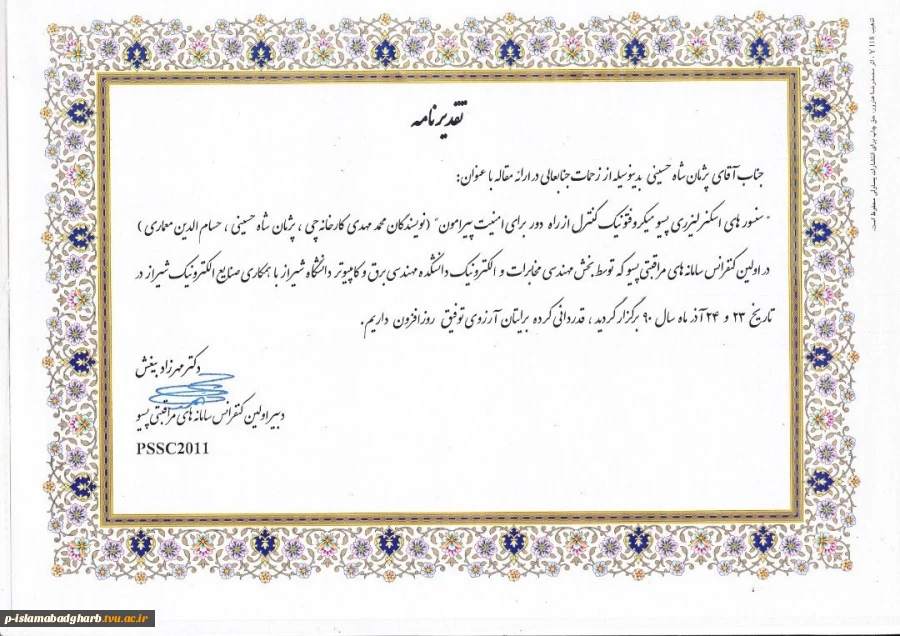 تقدیرنامه
جناب آقای پژمان شاه حسینی بدینوسیله از زحمات جنابعالی در ارائه مقاله با عنوان:
" سنسور های اسکنر لیزری پسیو میکروفتونیک کنترل از راه دور برای امنیت پیرامون" (نویسندگان محمد مهدی کارخانه چی ، پژمان شاه حسینی ، حسام الدین معماری )
در اولین کنفرانس سامانه های مراقبتی پسیو که توسط بخش مهندسی مخابرات و الکترونیک دانشکده مهندسی برق و کامپیوتر دانشگاه شیراز با همکاری صنایع الکترونیک شیراز در
تاریخ ۲۳ و ۲۴ آذر ماه سال ۹۰ برگزار گردید ، قدردانی کرده برایتان آرزوی توفیق روز افزون داریم.
دکتر مهرزاد بیغش
دبیر اولین کنفرانس سامانه های مراقبتی پسیو
PSSC2011
p-islamabadgharb.tvu.ac.ir